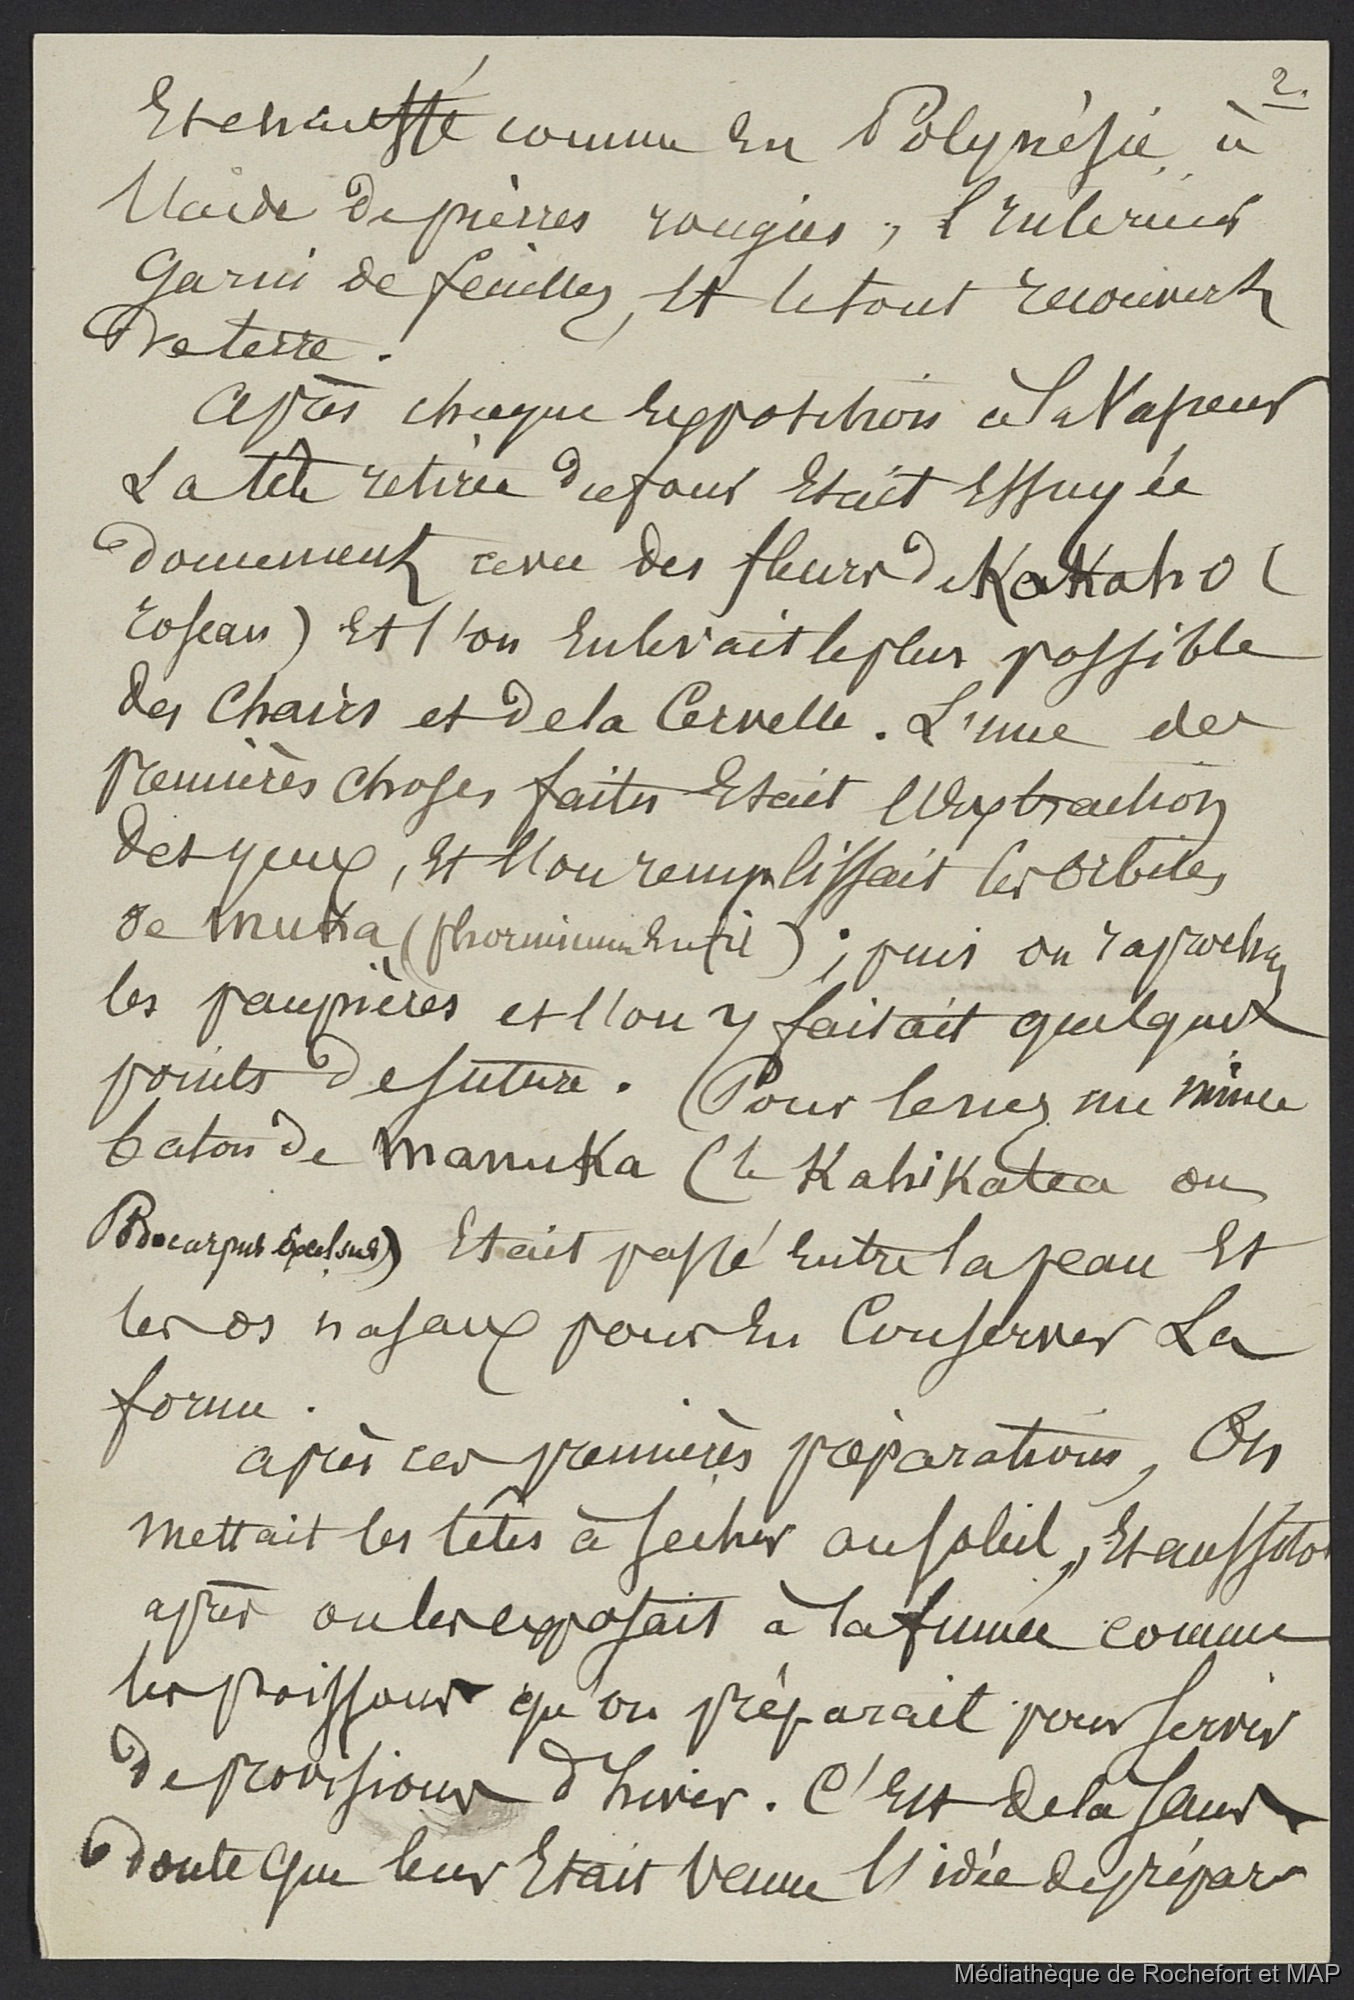 2.
Et chauffé comme en Polynésie, à
l'aide de pierres rougies, l'interieur
garni de feuilles, et le tout recouvert
de terre.
Après chaque exposition à la vapeur
La tête retirée du four etait essuyée
doucement avec des fleurs de Kakaho (
roseau) et l'on enlevait le plus possible
des chairs et de la cervelle. L'une des
premières choses faites etait l'extraction
des yeux, et l'on remplissait les orbites
de muka (phormium en fil) ; puis on raprochait
les paupières et l'on y faisait quelques
points de suture. Pour le nez un mince
baton de manuka (le Kahikatea ou
Podocarpus excelsus) etait passé entre la peau et
les os nasaux pour en conserver La
forme.
après ces premières prèparations, On
mettait les têtes à secher au soleil, et aussitot
après on les exposait à la fumée comme
les poissons qu'on préparait pour servir
de provisions d'hiver. C'est de la sans
doute que leur etait venue l'idée de prépar
Médiathèque de Rochefort et MAP